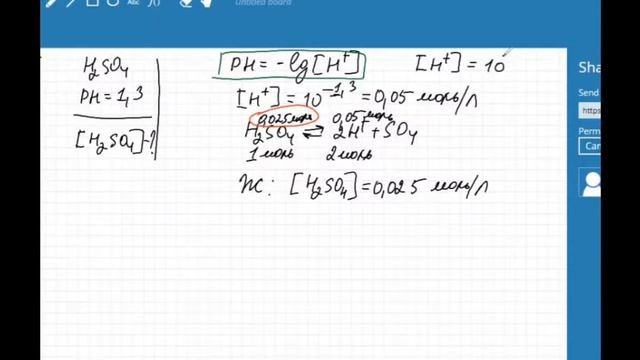 Abc
Untitled board
H₂SO₄
PH = 1,3
[H₂SO₄] - ?
PH = -lg[H⁺]
[H⁺] = 10
[H⁺] = 10⁻¹,³ = 0,05 моль/л
0,025 моль 0,05 моль
H₂SO₄ ⇌ 2H⁺ + SO₄
1 моль 2 моль
Ж: [H₂SO₄] = 0,025 моль/л
Sha
Send
https
Perm
Can